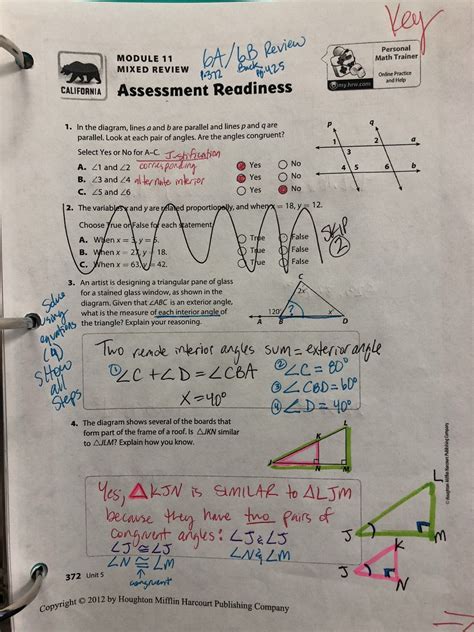 Key
MODULE 11
MIXED REVIEW
6A/6B Review
P.372 Back pg 425
Personal
Math Trainer
Online Practice
and Help
my.hrw.com
CALIFORNIA
Assessment Readiness
1. In the diagram, lines a and b are parallel and lines p and q are
parallel. Look at each pair of angles. Are the angles congruent?
Select Yes or No for A–C. Justification
A. ∠1 and ∠2 corresponding Yes No
B. ∠3 and ∠4 alternate interior Yes No
C. ∠5 and ∠6 Yes No
p q
1 2 a
3
4 5 6 b
2. The variables x and y are related proportionally, and when x = 18, y = 12.
Choose True or False for each statement.
A. When x = 3, y = True False
B. When x = 27, y = 18. True False
C. When x = 63, y = 42. True False
SKIP
2
3. An artist is designing a triangular pane of glass
for a stained glass window, as shown in the
diagram. Given that ∠ABC is an exterior angle,
what is the measure of each interior angle of
the triangle? Explain your reasoning.
C
2x
120° ? x
A B D
Solve
using
equations
(4)
Show
all
Steps
Two remote interior angles sum = exterior angle
① ∠C + ∠D = ∠CBA
② ∠C = 80°
③ ∠CBD = 60°
X = 40°
④ ∠D = 40°
4. The diagram shows several of the boards that
form part of the frame of a roof. Is △JKN similar
to △JLM? Explain how you know.
L
K
J N M
Yes, △KJN is SIMILAR to △LJM
because they have two pairs of
congruent angles: ∠J & ∠J
∠J ≅ ∠J ∠N & ∠M
∠N ≅ ∠M
congruent
L
J M
K
J N
© Houghton Mifflin Harcourt Publishing Company
372 Unit 5
Copyright © 2012 by Houghton Mifflin Harcourt Publishing Company